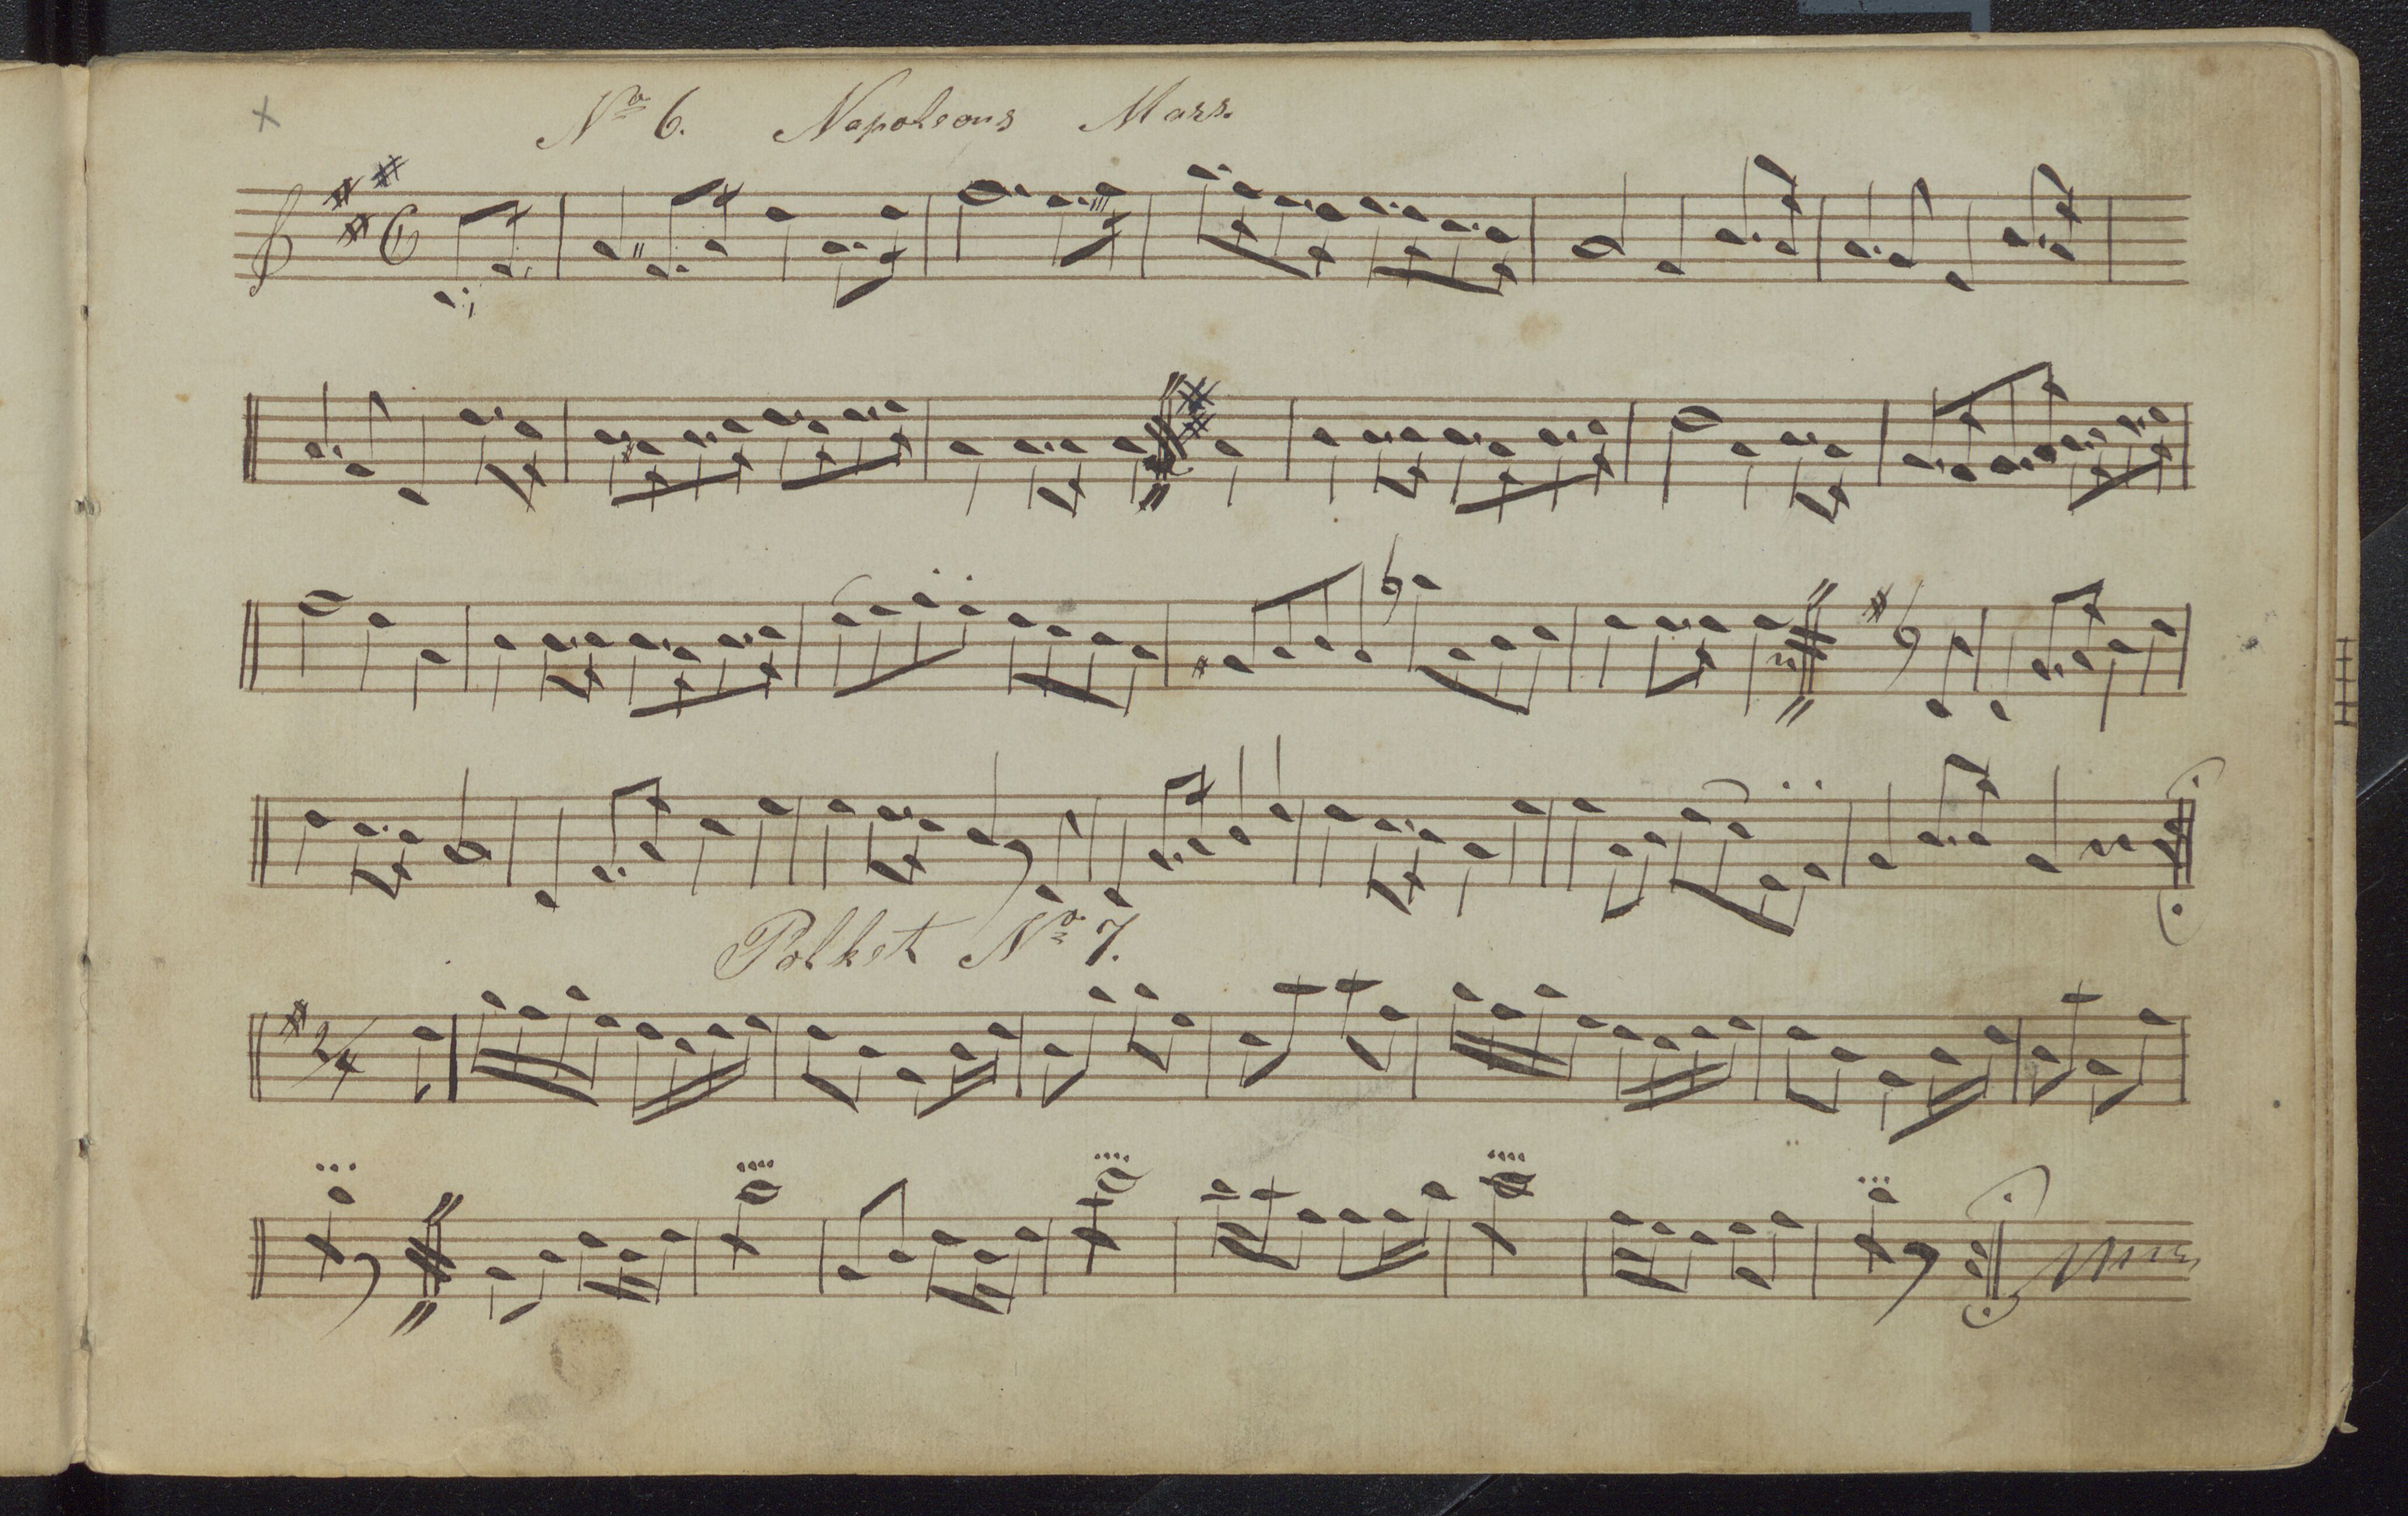 No 6. Napoleons Mars.
Polket No 7.
2/4